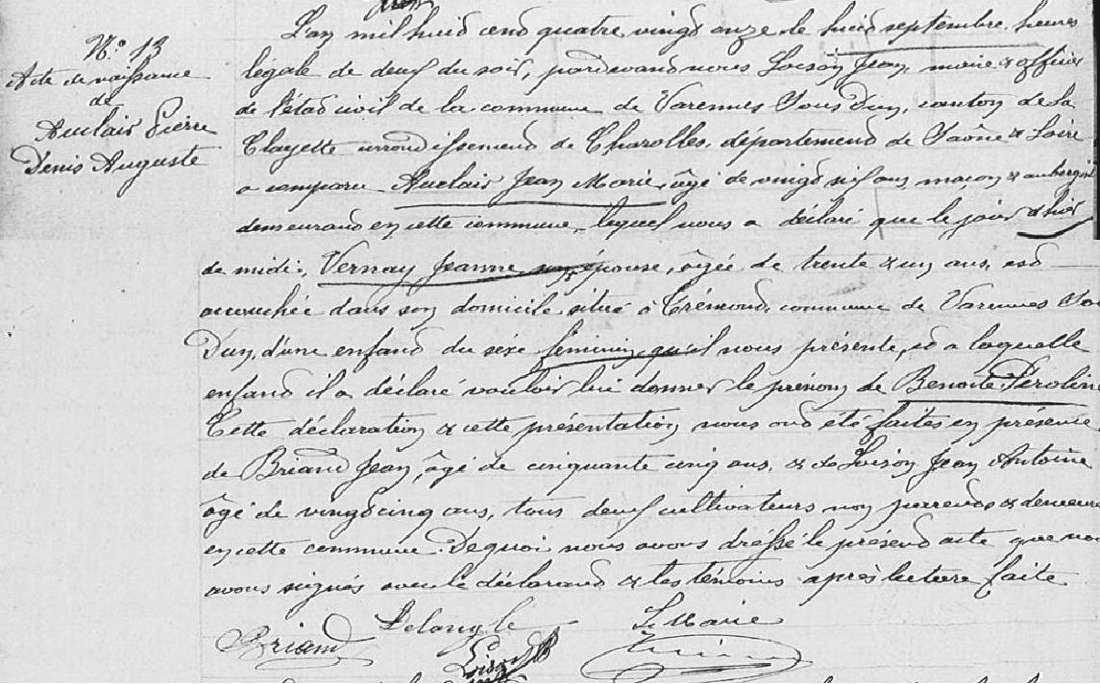 N.° 13
Acte de naissance
de
Auclair Pierre
Denis Auguste
L'an mil huit cent quatre vingt onze le huit septembre heures
légale de deux du soir, pardevant nous Loison Jean, maire & officier
de l'état civil de la commune de Varennes Sous Dun, canton de la
Clayette arrondissement de Charolles, département de Saône & Loire
a comparu Auclair Jean Marie, âgé de vingt six ans, maçon & aubergiste
demeurant en cette commune, lequel nous a déclaré que le jour d'hier
de midi, Vernay Jeanne son épouse, âgée de trente & un ans, est
accouchée dans son domicile situé à Trémont, commune de Varennes Sous
Dun, d'une enfant du sexe féminin, qu'il nous présente, et a laquelle
enfant il a déclaré vouloir lui donner le prénom de Benoite Péroline
Cette déclaration & cette présentation nous ont été faites en présence
de Briand Jean, âgé de cinquante cinq ans, & de Loison Jean Antoine
âgé de vingt cinq ans, tous deux cultivateurs non parents & demeurant
en cette commune. De quoi nous avons dressé le présent acte que nous
avons signés avec le déclarant & les témoins après lecture faite
Briand Loison Le Maire